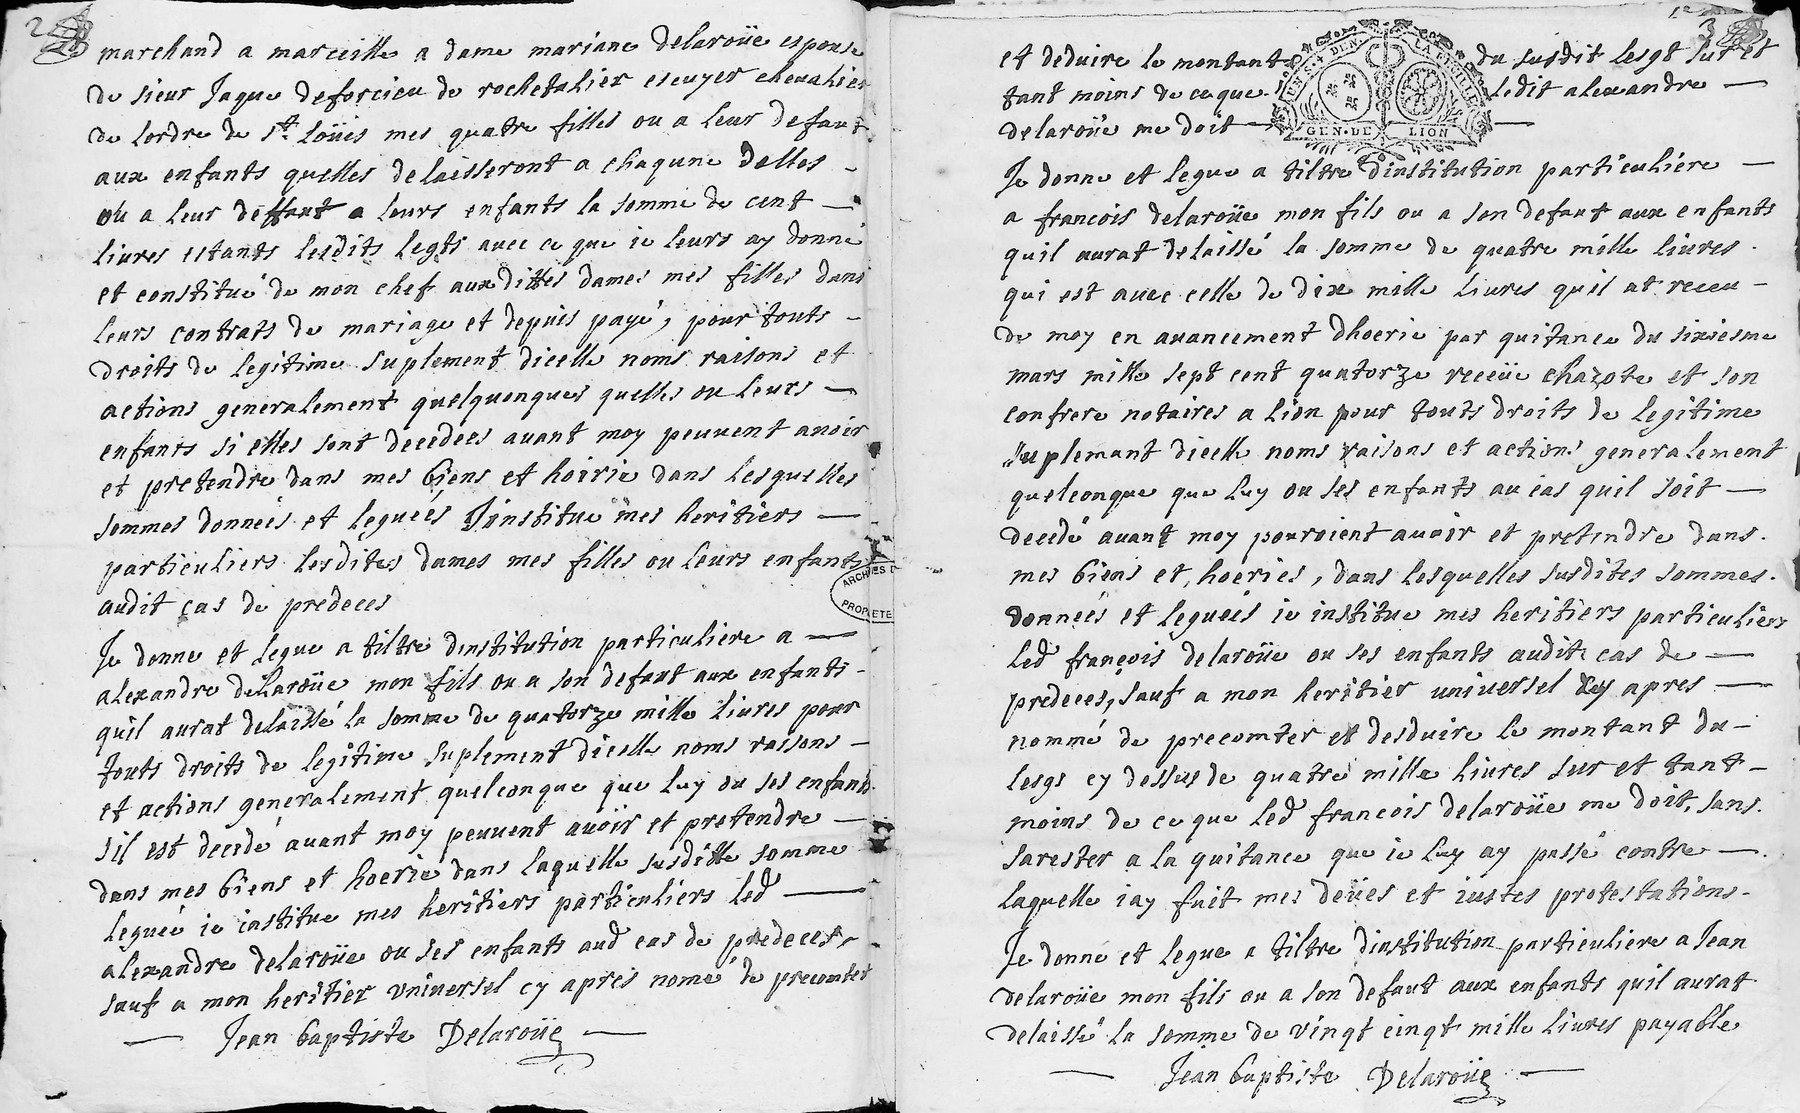 2
marchand a marceille a dame mariane delaroüe espouse
de sieur Jaque deforcieu de rochetalier escuyer chevalier
de lordre de St. loüis mes quatre filles ou a leur defaut
aux enfants quelles delaisseront a chaqune delles -
ou a leur deffaut a leurs enfants la somme de cent —
livres estants lesdits legts avec ce que ie leurs ay donné
et constitué de mon chef aux dittes dames mes filles dans
leurs contrats de mariage et depuis payé, pour touts -
droits de legitime suplement dicelle noms raisons et
actions generalement quelquonques quelles ou leurs —
enfants si elles sont decedees avant moy peuvent avoir
et pretendre dans mes biens et hoirie dans lesquelles
sommes donneés et legueés J'institue mes heritiers —
particuliers lesdites dames mes filles ou leurs enfants
audit cas de predeces
Je donne et legue a tiltre dinstitution particuliere a —
alexandre delaroüe mon fils ou a son defaut aux enfants -
quil aurat delaissé la somme de quatorze mille livres pour
touts droits de legitime suplement dicelle noms raisons -
et actions generalement quelconque que luy ou ses enfants
sil est decedé avant moy peuvent avoir et pretendre —
dans mes biens et hoerie dans laquelle susditte somme
leguée ie institue mes heritiers particuliers led —
alexandre delaroüe ou ses enfants aud cas de predeces,
sauf a mon heritier universel cy apres nomé de precomter
— Jean baptiste Delaroüe —
ARCHIVES D
PROPRIETE
3
et deduire le montant du susdit legt sur et
tant moins de ce que ledit alexandre —
delaroüe me doit — —
GEN. DE LION
Je donne et legue a tiltre dinstitution particuliere —
a francois delaroüe mon fils ou a son defaut aux enfants
quil aurat delaissé la somme de quatre mille livres .
qui est avec celle de dix mille livres quil at receu -
de moy en avancement dhoerie par quitance du sixiesme
mars mille sept cent quatorze receüe chazote et son
confrere notaires a lion pour touts droits de legitime
suplemant dicelle noms raisons et actions generalement
quelconque que luy ou ses enfants au cas quil soit —
decedé avant moy pouroient avoir et pretendre dans .
mes biens et, hoeries, dans lesquelles susdites sommes .
donneés et legueés ie institue mes heritiers particuliers
led françois delaroüe ou ses enfants audit cas de —
predeces, sauf a mon heritier universel cy apres —
nommé de precomter et desduire le montant du -
legs cy dessus de quatre mille livres sur et tant -
moins de ce que led francois delaroüe me doit, sans .
sarester a la quitance que ie luy ay passé contre — .
laquelle iay fait mes deües et iustes protestations -
Je donne et legue a tiltre dinstitution particuliere a Jean
delaroüe mon fils ou a son defaut aux enfants quil aurat
delaissé la somme de vingt cinqt mille livres payable
— Jean baptiste Delaroüe —